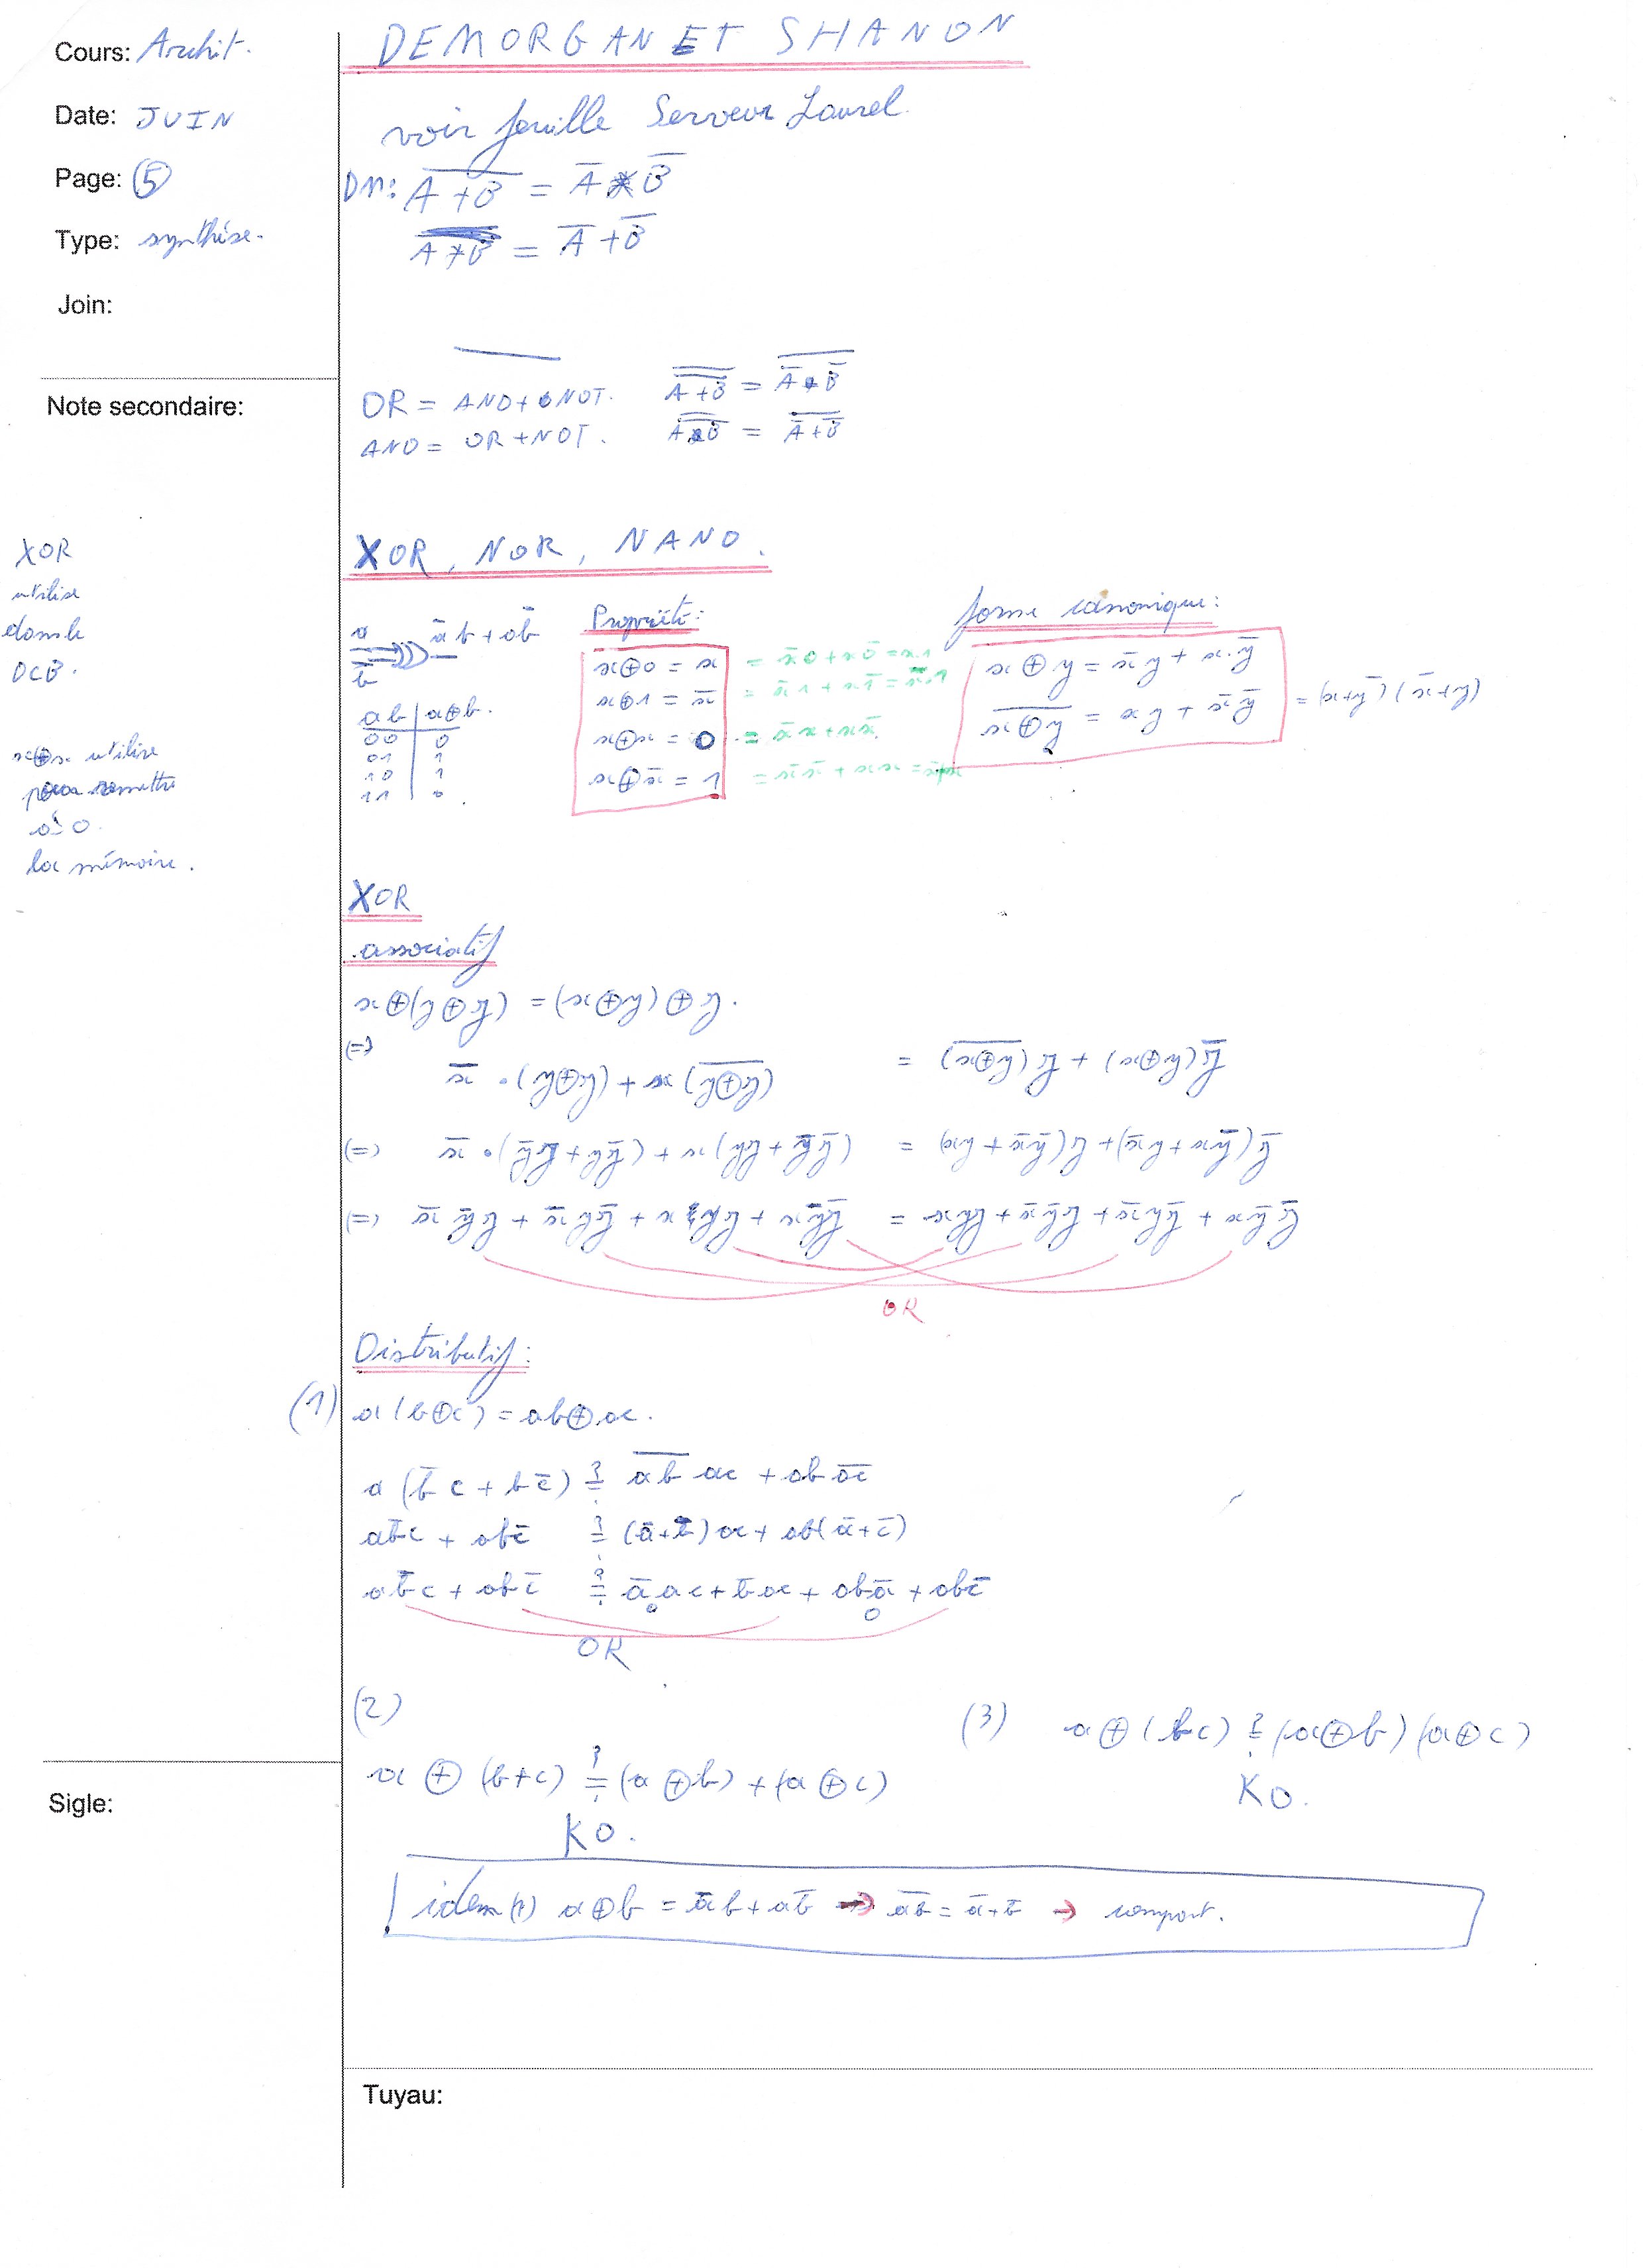 Cours: Archit.
Date: JUIN
Page: 5
Type: synthèse.
Join:
Note secondaire:
XOR
utilise
dans le
DCB.
x⊕x utilise
pour remettre
à 0.
la mémoire.
Sigle:
DEMORGAN ET SHANON
voir feuille Serveur Laurel.
DM: \overline{A+B} = A̅ * B̅
\overline{A*B} = A̅ + B̅
OR = AND + NOT. \overline{\overline{A+B}} = \overline{A̅*B̅}
AND = OR + NOT. \overline{\overline{A*B}} = \overline{A̅+B̅}
XOR, NOR, NAND.
a
b
a̅b + ab̅
ab | a⊕b.
00 | 0
01 | 1
10 | 1
11 | 0
Propriété:
x⊕0 = x = x̅0 + x0̅ = x.1
x⊕1 = x̅ = x̅1 + x1̅ = x̅.1
x⊕x = 0 = x̅x + xx̅
x⊕x̅ = 1 = x̅x̅ + xx = x̅+x
forme canonique:
x⊕y = x̅y + x.y̅
\overline{x⊕y} = xy + x̅y̅ = (x+y̅)(x̅+y)
XOR
.associatif
x⊕(y⊕z) = (x⊕y)⊕z.
(=) x̅.(y⊕z) + x(\overline{y⊕z}) = (\overline{x⊕y})z + (x⊕y)z̅
(=) x̅.(y̅z + yz̅) + x(yz + y̅z̅) = (xy + x̅y̅)z + (x̅y + xy̅)z̅
(=) x̅y̅z + x̅yz̅ + xyz + xy̅z̅ = xyz + x̅y̅z + x̅yz̅ + xy̅z̅
OR
Distributif:
(1) a(b⊕c) = ab⊕ac.
a(b̅c + bc̅) ≟ \overline{ab} ac + ab \overline{ac}
ab̅c + abc̅ ≟ (a̅+b̅)ac + ab(a̅+c̅)
ab̅c + abc̅ ≟ a̅ac + b̅ac + aba̅ + abc̅
0 0
OK
(2)
a⊕(b+c) ≟ (a⊕b) + (a⊕c)
KO.
(3) a⊕(bc) ≟ (a⊕b)(a⊕c)
KO.
idem (1) a⊕b = a̅b + ab̅ → \overline{ab} = a̅+b̅ → compart.
Tuyau: